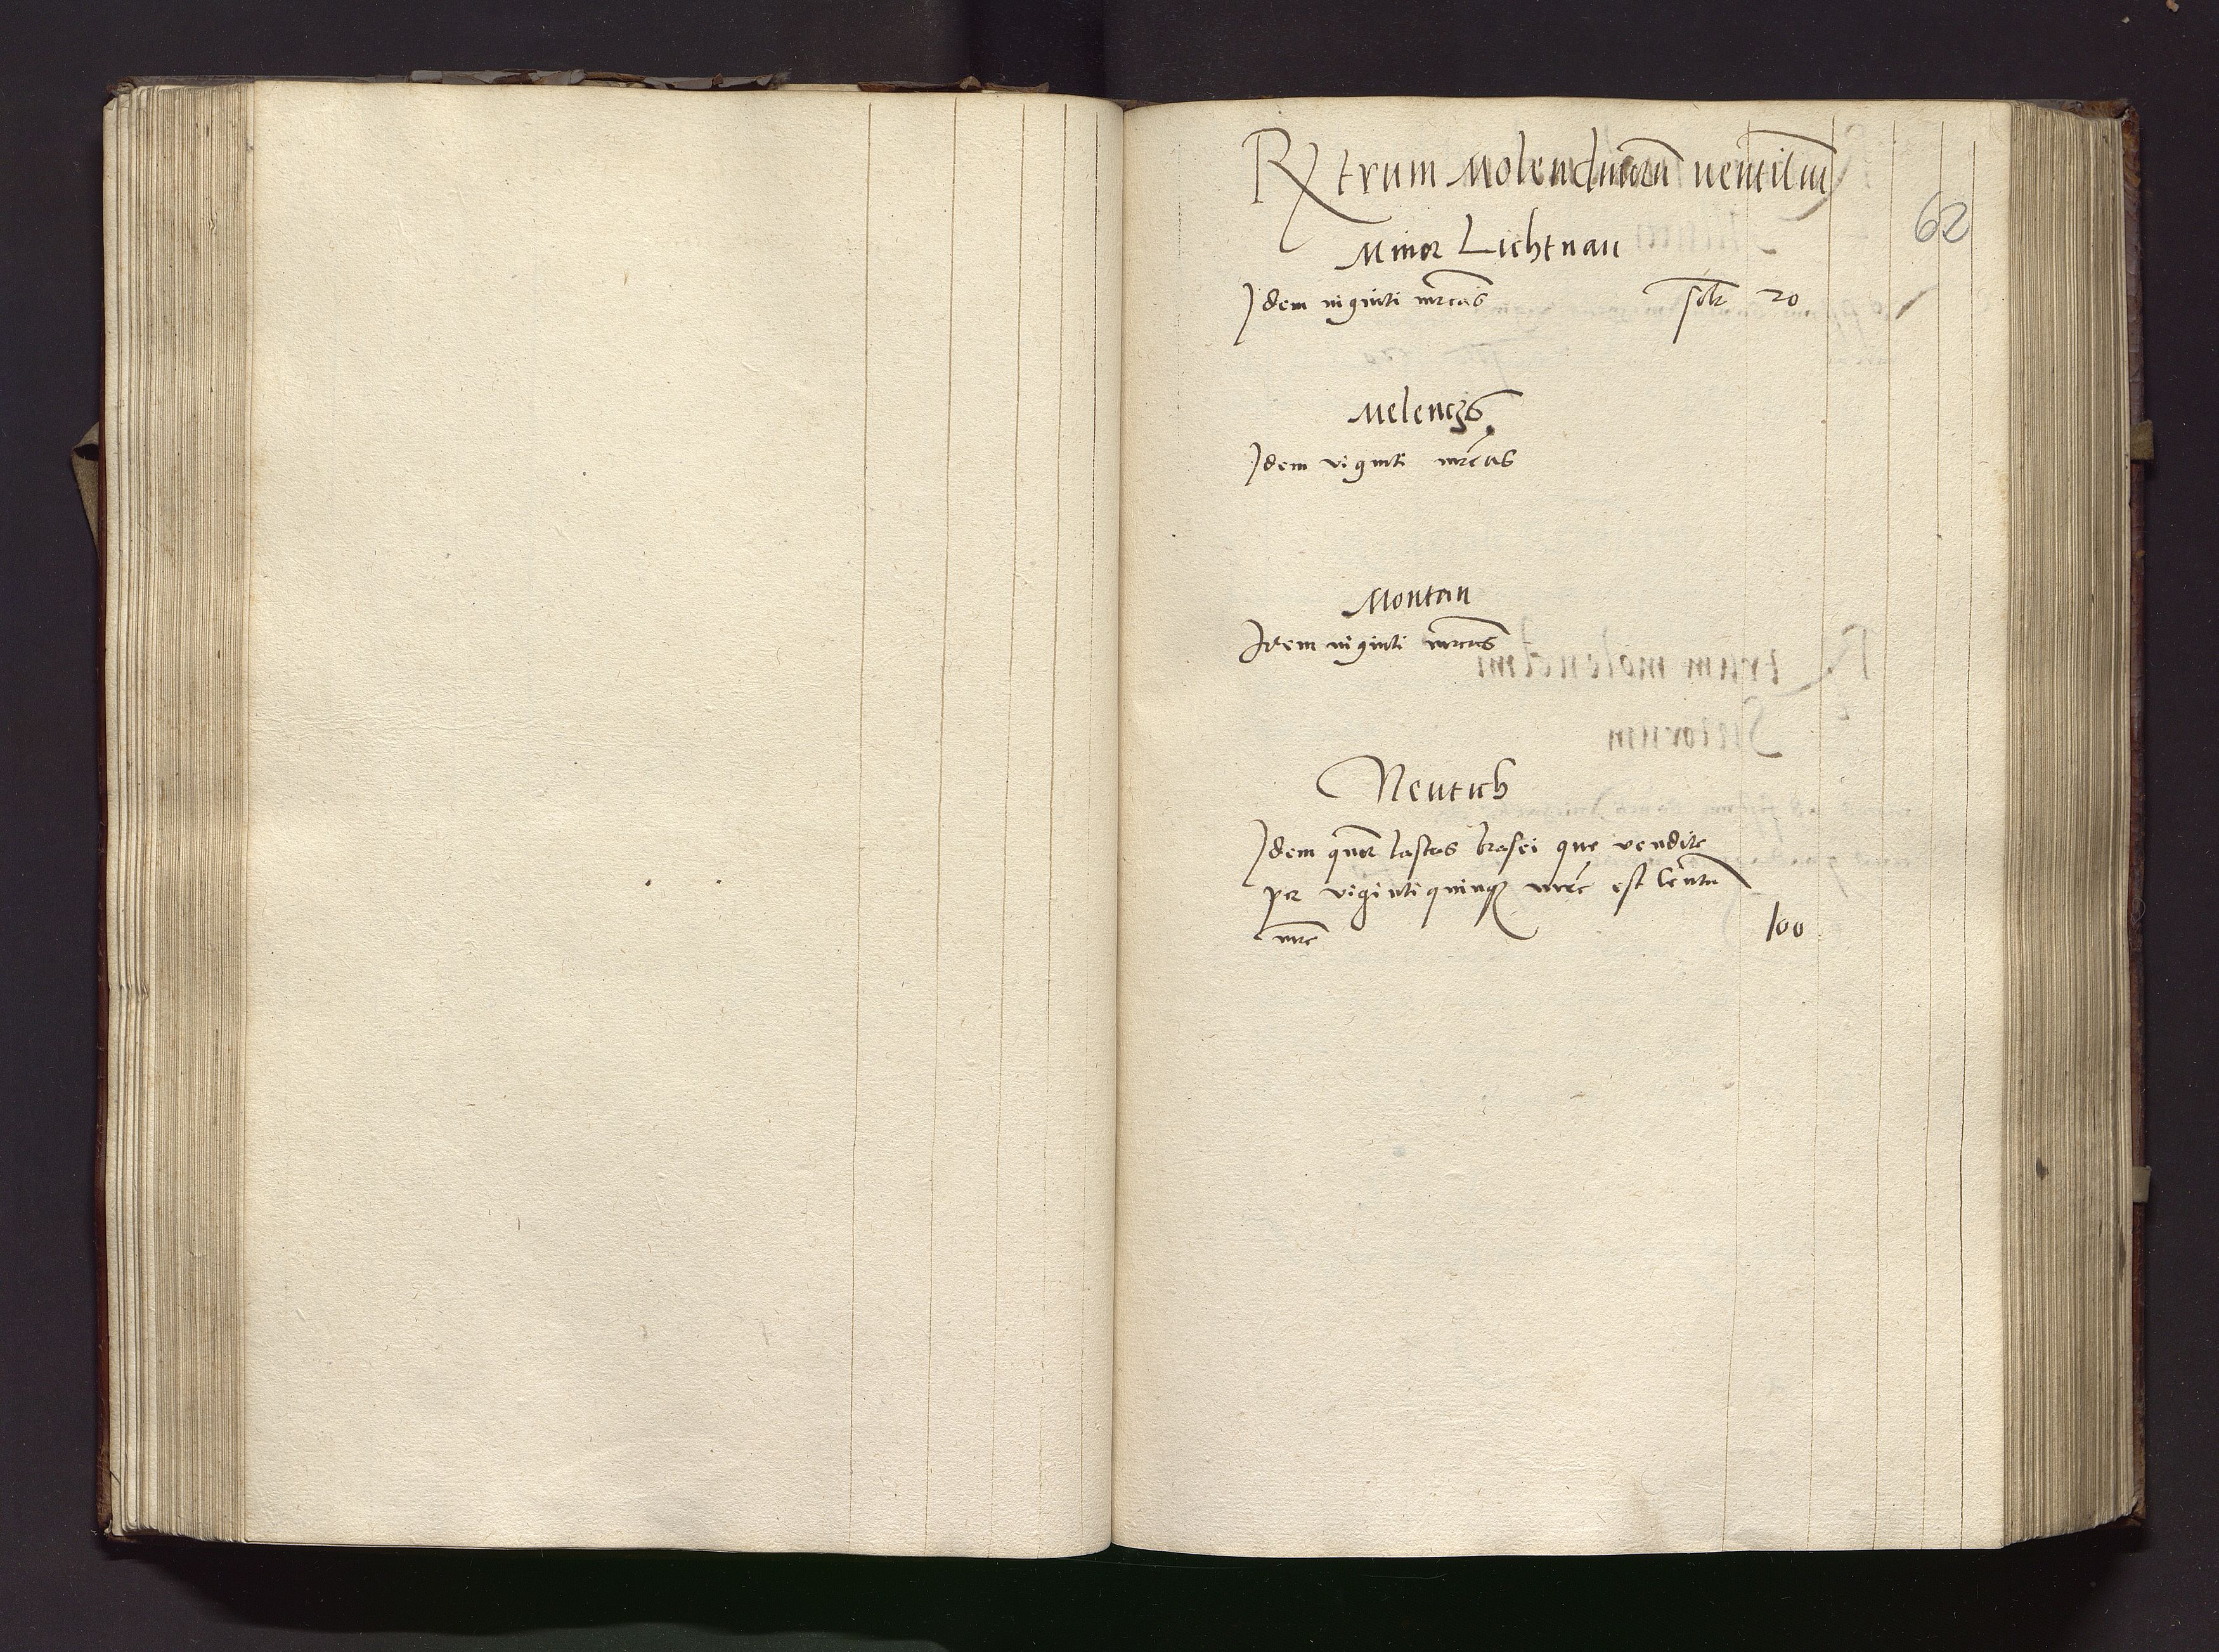 Rx trum Molendinorū ventiliū
62
Minor Lichtnau
Idem viginti mrcas solt 20
Melencz
Idem viginti mrcas
Montan
Idem viginti mrcas
Neutich
Idem quor lastas brasei que vendite
per viginti quinqz mrc est Centū
mrc 100